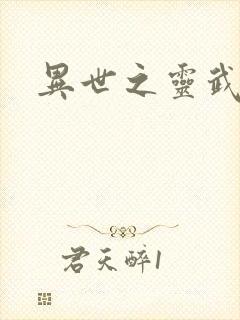 異世之靈武
君天醉1